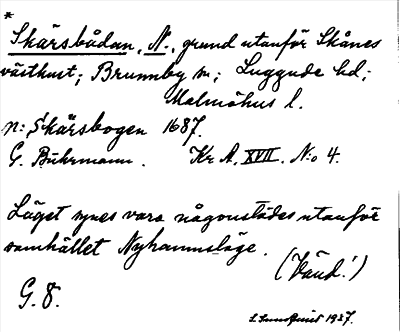 *
Skärsbådan, N., grund utanför Skånes
västkust; Brunnby sn; Luggude hd;
Malmöhus l.
n: Skärsbogen 1687.
G. Buhrmann. Kr A, XVII. N:o 4.
Läget synes vara någonstädes utanför
samhället Nyhamnsläge.
(Vänd!)
G. 8.
1937.